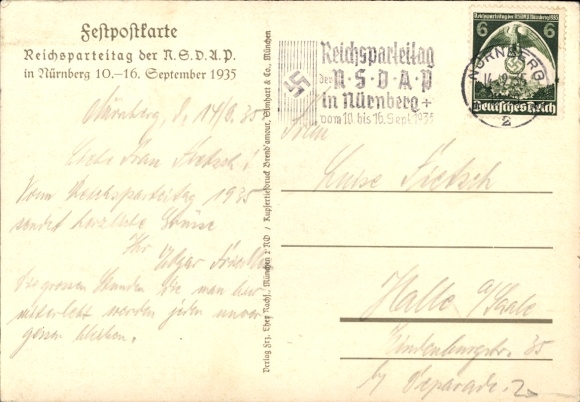 Festpostkarte
Reichsparteitag der N.S.D.A.P.
in Nürnberg 10.–16. September 1935
Nürnberg, d. 14/9. 35
Frau
Vom Reichsparteitag 1935
sendet herzliche Grüsse
Ihr Edgar
Die grossen Stunden die man hier
miterlebt werden jeden unver
gessen bleiben.
Verlag Frz. Eher Nachf., München 2 NO / Kupfertiefdruck Brend'amour, Simhart & Co., München
Reichsparteitag
der N·S·D·A·P
in Nürnberg
vom 10. bis 16. Sept. 1935
NÜRNBERG
2
Reichsparteitag der NSDAP Nürnberg 1935
6 6
Deutsches Reich
Frau
Luise
Halle a/Saale
Hindenburgstr. 35